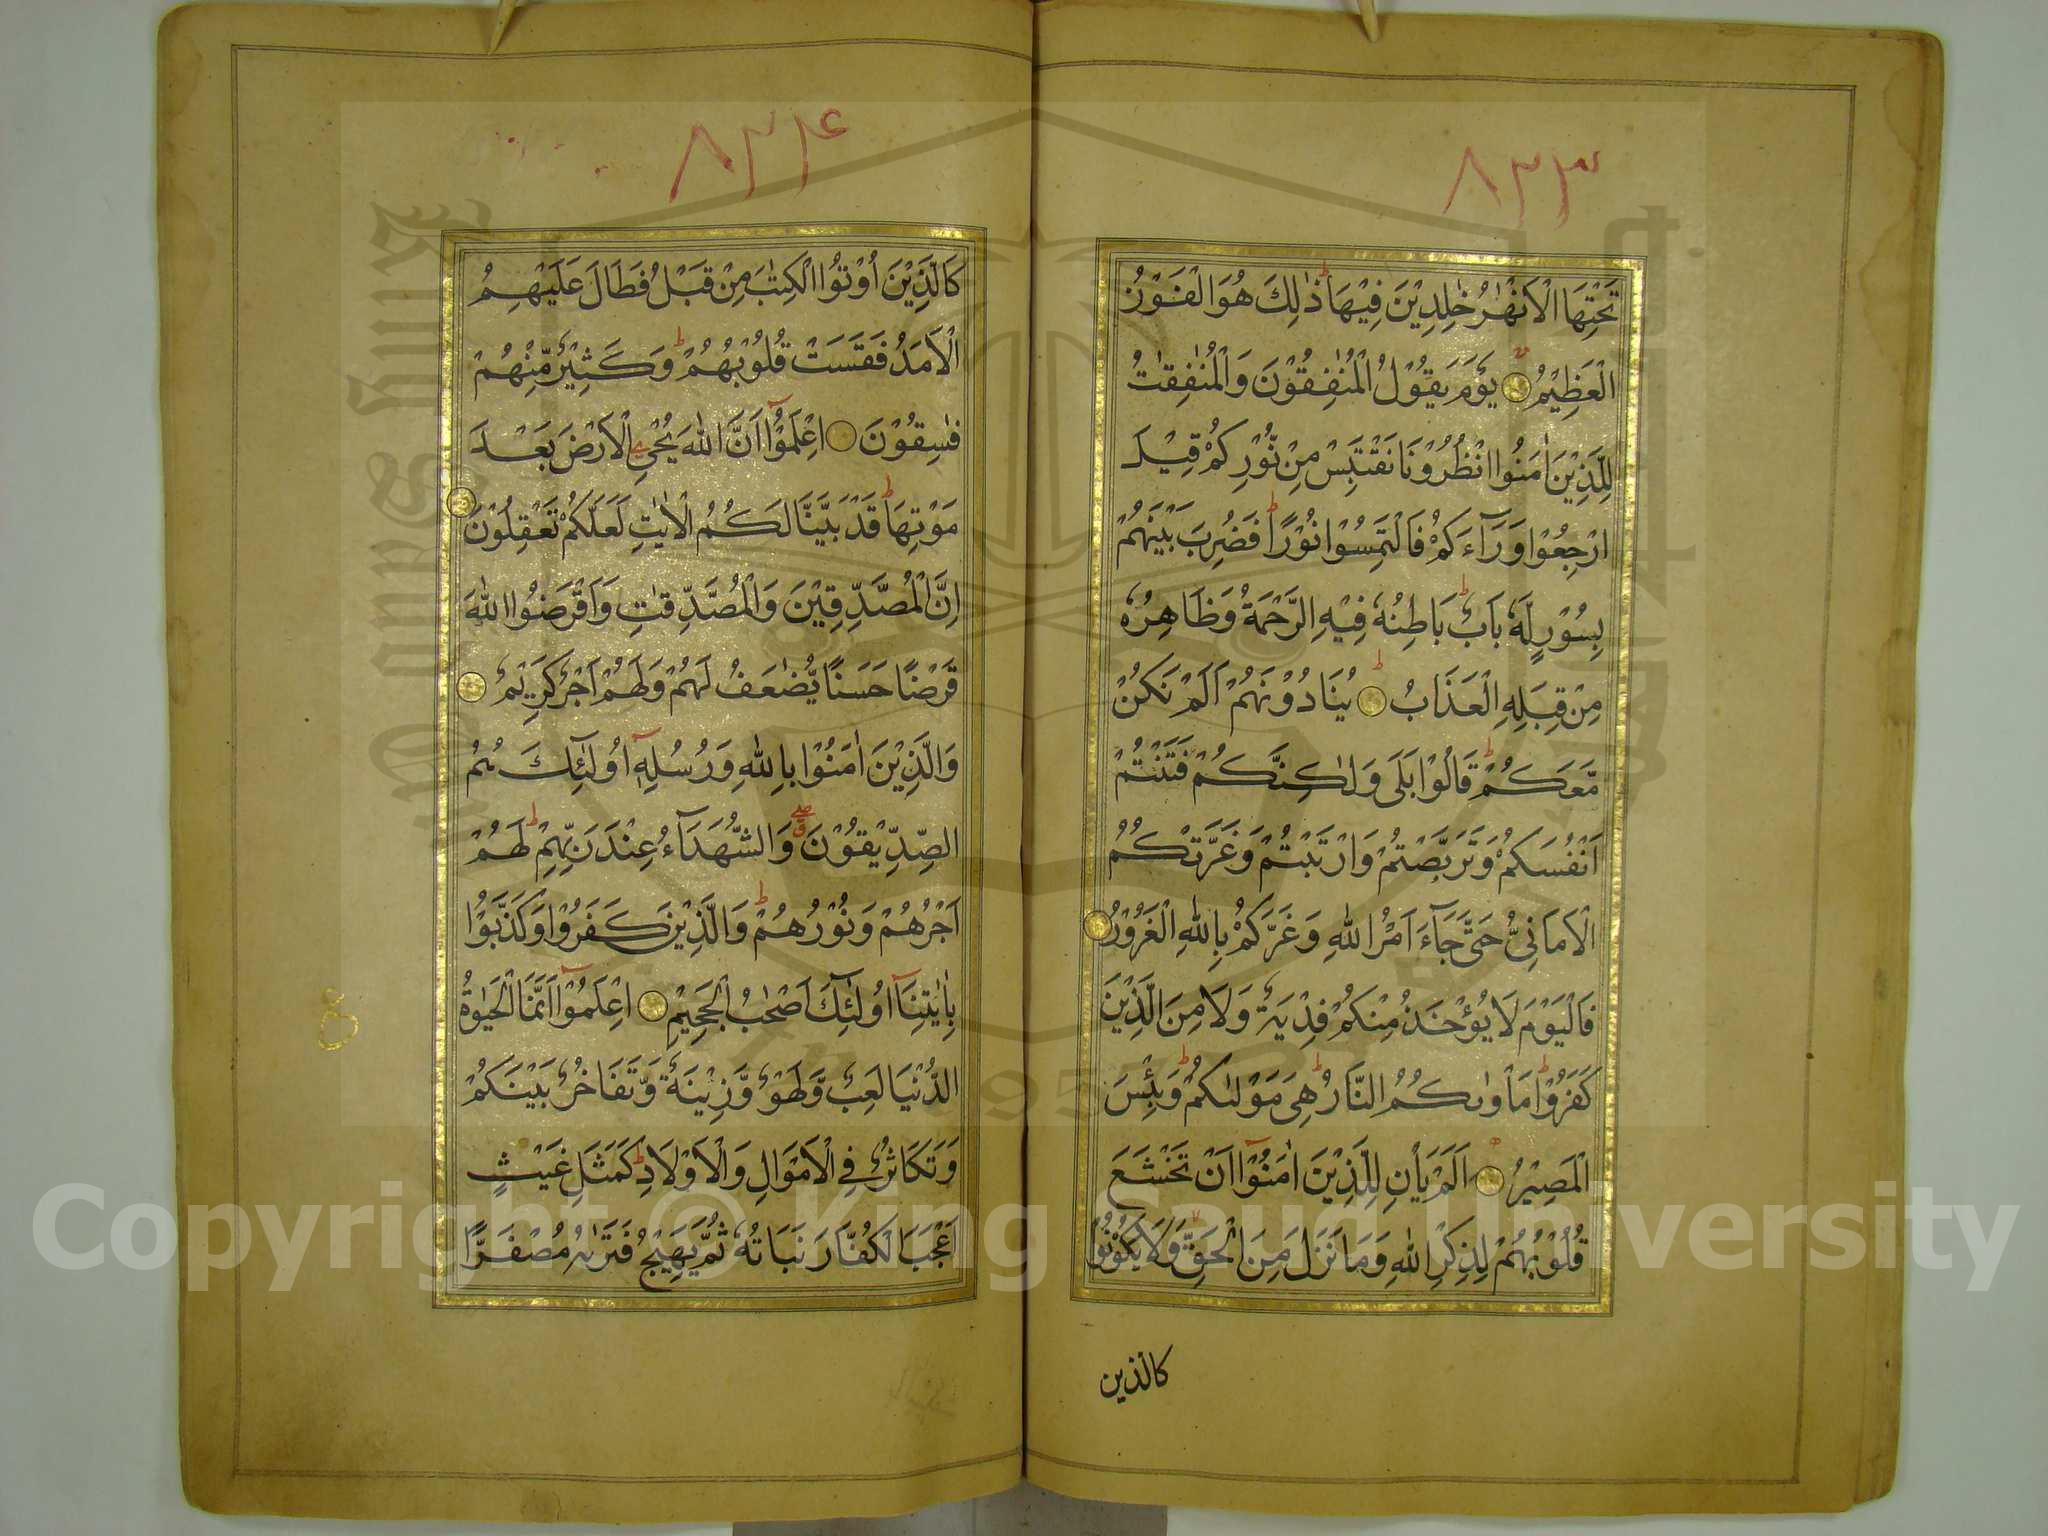 ٨٢٣
تَحْتِهَا الْاَنْهٰرُ خٰلِدِيْنَ فِيْهَا ط ذٰلِكَ هُوَ الْفَوْزُ
الْعَظِيْمُ يَوْمَ يَقُوْلُ الْمُنٰفِقُوْنَ وَالْمُنٰفِقٰتُ
لِلَّذِيْنَ اٰمَنُوا انْظُرُوْنَا نَقْتَبِسْ مِنْ نُّوْرِكُمْ قِيْلَ
ارْجِعُوْا وَرَآءَكُمْ فَالْتَمِسُوْا نُوْرًا ط فَضُرِبَ بَيْنَهُمْ
بِسُوْرٍ لَّهٗ بَابٌ ط بَاطِنُهٗ فِيْهِ الرَّحْمَةُ وَظَاهِرُهٗ
مِنْ قِبَلِهِ الْعَذَابُ ط يُنَادُوْنَهُمْ اَلَمْ نَكُنْ
مَّعَكُمْ ط قَالُوْا بَلٰى وَلٰكِنَّكُمْ فَتَنْتُمْ
اَنْفُسَكُمْ وَتَرَبَّصْتُمْ وَارْتَبْتُمْ وَغَرَّتْكُمُ
الْاَمَانِيُّ حَتّٰى جَآءَ اَمْرُ اللّٰهِ وَغَرَّكُمْ بِاللّٰهِ الْغَرُوْرُ
فَالْيَوْمَ لَا يُؤْخَذُ مِنْكُمْ فِدْيَةٌ وَلَا مِنَ الَّذِيْنَ
كَفَرُوْا ط مَاْوٰىكُمُ النَّارُ ط هِىَ مَوْلٰىكُمْ ط وَبِئْسَ
الْمَصِيْرُ اَلَمْ يَاْنِ لِلَّذِيْنَ اٰمَنُوْٓا اَنْ تَخْشَعَ
قُلُوْبُهُمْ لِذِكْرِ اللّٰهِ وَمَا نَزَلَ مِنَ الْحَقِّ لا وَلَا يَكُوْنُوْا
كالذين
٨٢٤
كَالَّذِيْنَ اُوْتُوا الْكِتٰبَ مِنْ قَبْلُ فَطَالَ عَلَيْهِمُ
الْاَمَدُ فَقَسَتْ قُلُوْبُهُمْ ط وَكَثِيْرٌ مِّنْهُمْ
فٰسِقُوْنَ اِعْلَمُوْٓا اَنَّ اللّٰهَ يُحْيِ الْاَرْضَ بَعْدَ
مَوْتِهَا ط قَدْ بَيَّنَّا لَكُمُ الْاٰيٰتِ لَعَلَّكُمْ تَعْقِلُوْنَ
اِنَّ الْمُصَّدِّقِيْنَ وَالْمُصَّدِّقٰتِ وَاَقْرَضُوا اللّٰهَ
قَرْضًا حَسَنًا يُّضٰعَفُ لَهُمْ وَلَهُمْ اَجْرٌ كَرِيْمٌ
وَالَّذِيْنَ اٰمَنُوْا بِاللّٰهِ وَرُسُلِهٖٓ اُولٰٓئِكَ هُمُ
الصِّدِّيْقُوْنَ وَالشُّهَدَآءُ عِنْدَ رَبِّهِمْ ط لَهُمْ
اَجْرُهُمْ وَنُوْرُهُمْ ط وَالَّذِيْنَ كَفَرُوْا وَكَذَّبُوْا
بِاٰيٰتِنَآ اُولٰٓئِكَ اَصْحٰبُ الْجَحِيْمِ اِعْلَمُوْٓا اَنَّمَا الْحَيٰوةُ
الدُّنْيَا لَعِبٌ وَّلَهْوٌ وَّزِيْنَةٌ وَّتَفَاخُرٌ بَيْنَكُمْ
وَتَكَاثُرٌ فِي الْاَمْوَالِ وَالْاَوْلَادِ ط كَمَثَلِ غَيْثٍ
اَعْجَبَ الْكُفَّارَ نَبَاتُهٗ ثُمَّ يَهِيْجُ فَتَرٰىهُ مُصْفَرًّا
Copyright © King Saud University